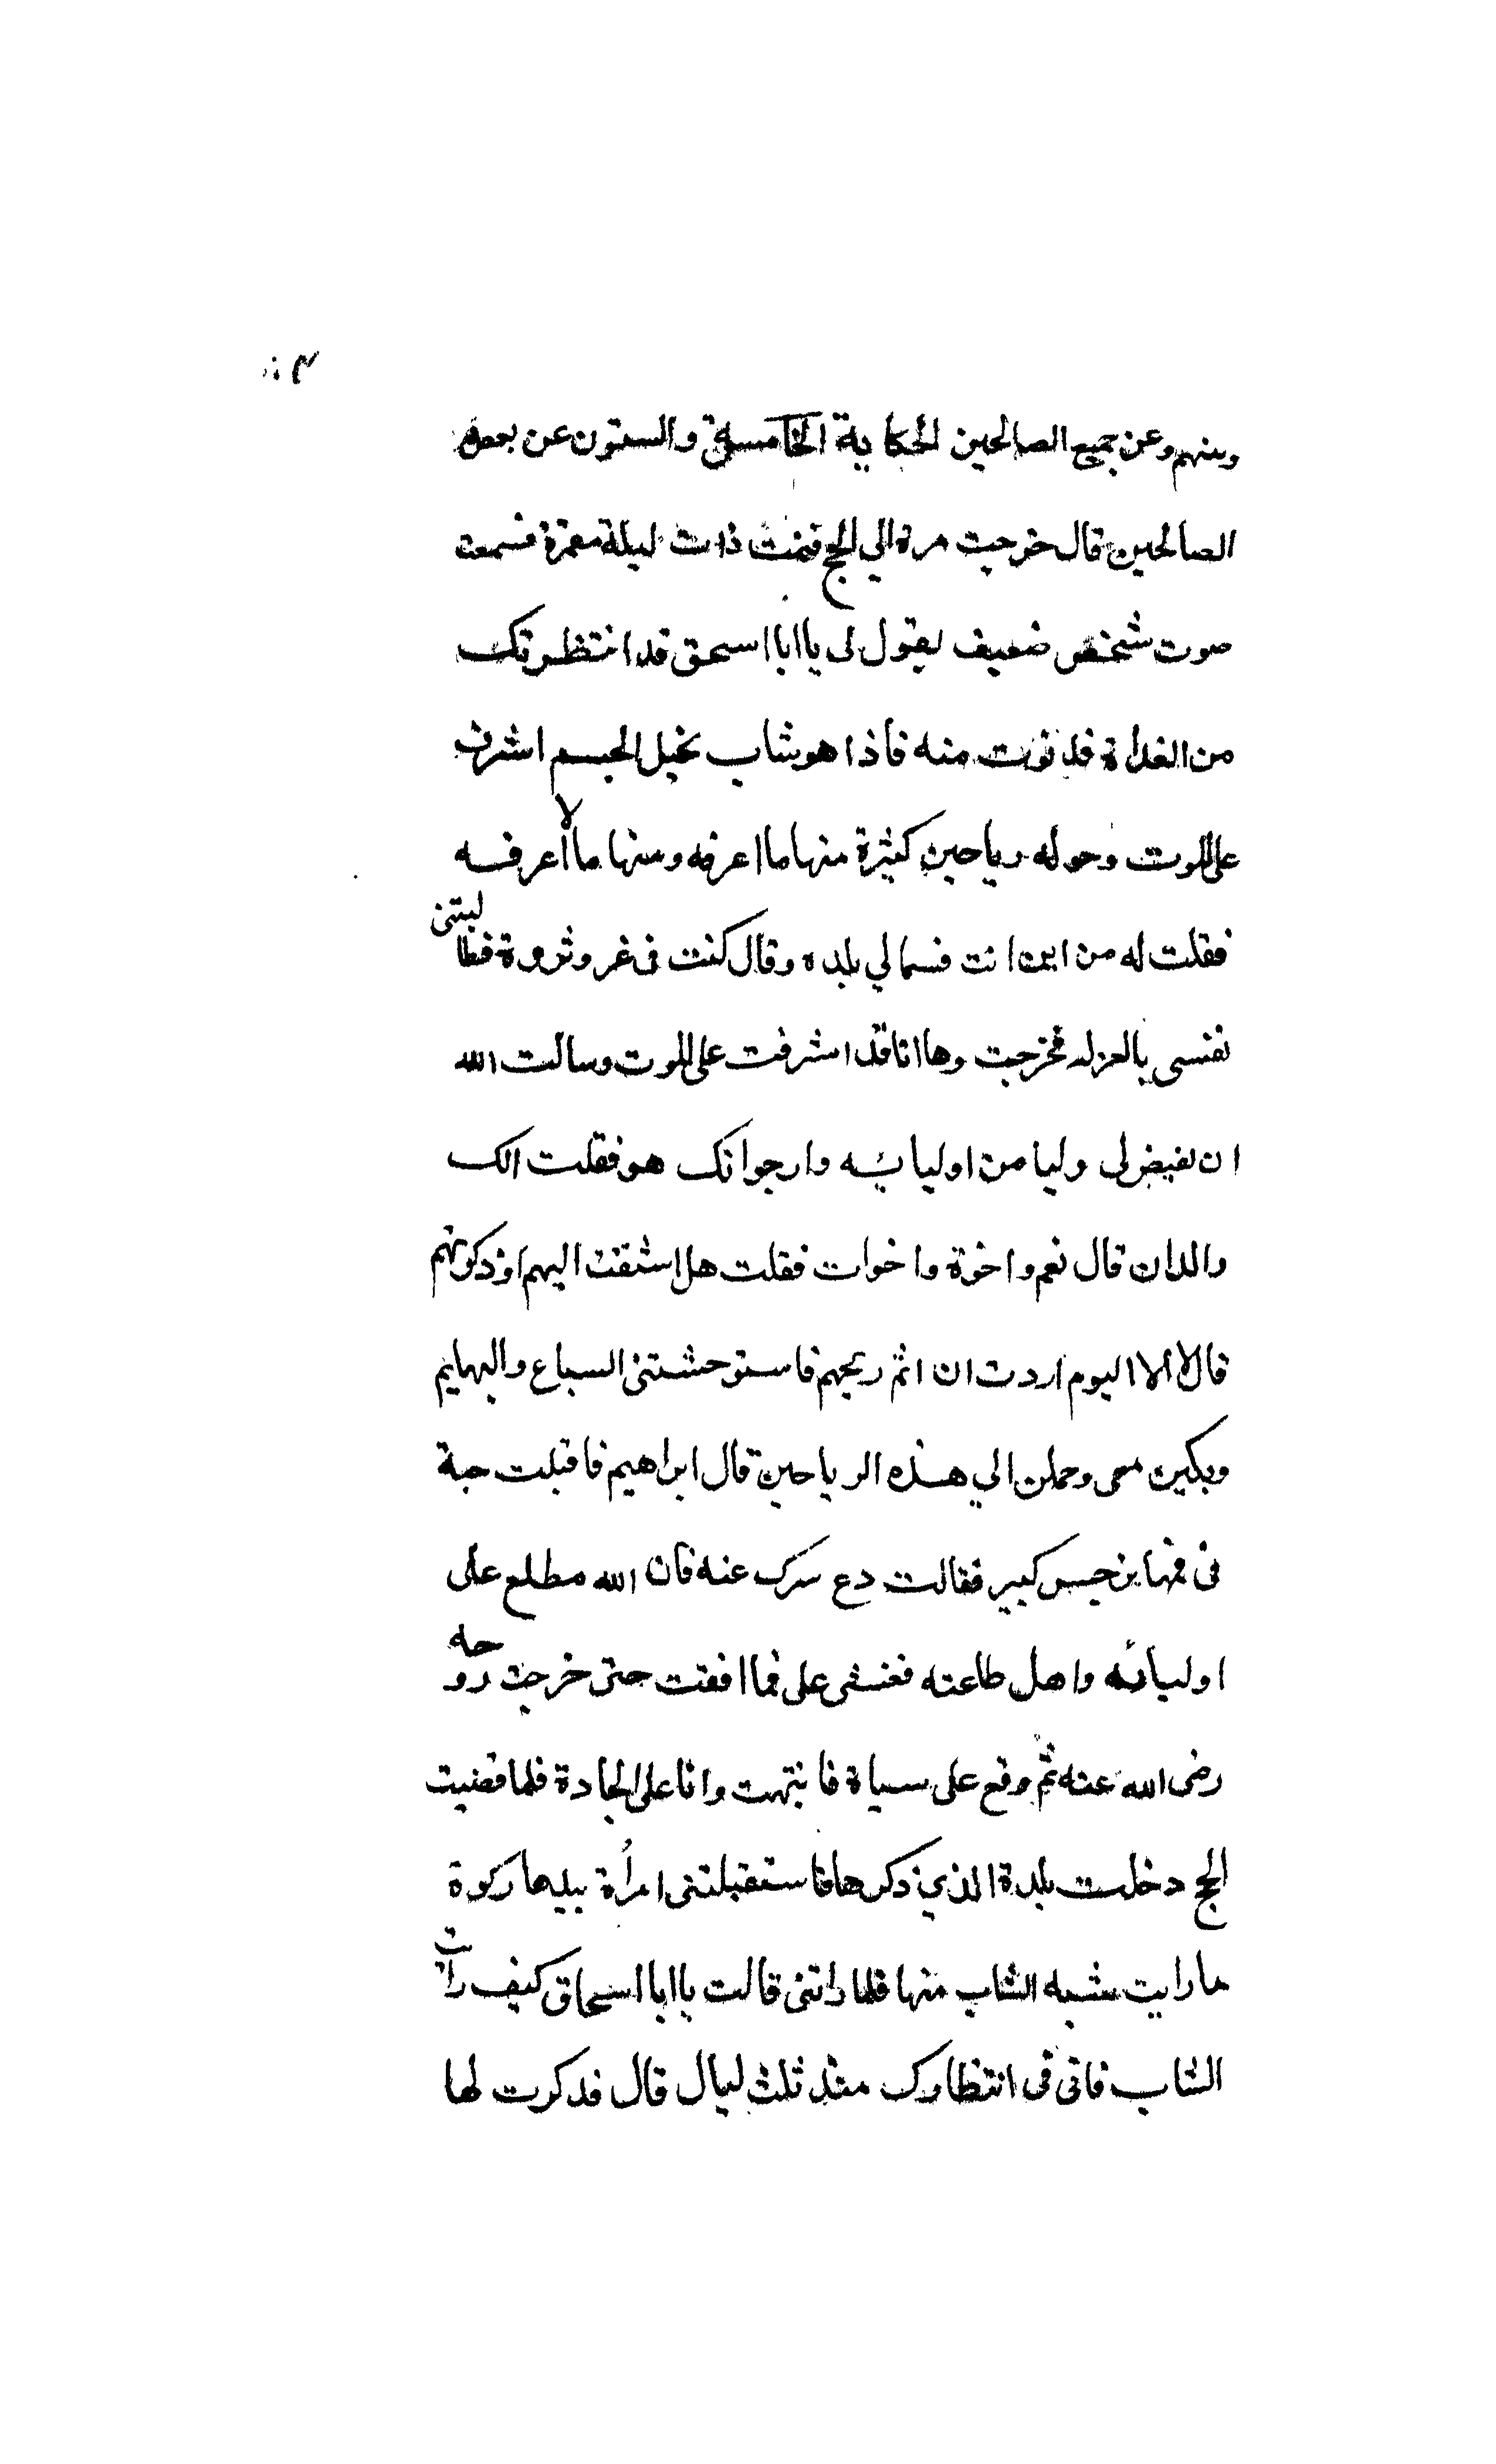 ومنهم وعن جميع الصالحين الحكاية الخامسة والستون عن بعض
الصالحين قال خرجت مرة الي الحج فنمت ذات ليلة مقمرة فسمعت
صوت شخص ضعيف يقول لى يا ابا اسحق قد انتظرتك
من الغداة فدنوت منه فاذا هو شاب نحيل الجسم اشرف
على الموت وحوله رياحين كثيرة منها ما اعرفه ومنها ما لا أعرفه
فقلت له من اين انت فسما لي بلده وقال كنت فى عز وثروة فطالبتنى
نفسى بالعزله فخرجت وها انا قد اشرفت على الموت وسالت الله
ان يقيض لى وليا من اوليايه وارجوا نك هو فقلت الك
والدان قال نعم واخوة واخوات فقلت هل اشتقت اليهم او ذكرتهم
قال لا الا اليوم اردت ان اشم ريحهم فاستوحشتنى السباع والبهايم
وبكين معى وحملن الي هذه الرياحين قال ابراهيم فاقبلت حية
فى فمها نرجس كبير فقالت دع سرك عنه فان الله مطلع على
اوليائه واهل طاعته فغشى على فما افقت حتى خرجت روحه
رضى الله عنه ثم وقع على سباة فانتبهت وانا على الجادة فلما قضيت
الحج دخلت بلدة الذي ذكرها فاستقبلتنى امرأة بيدها ركوة
ما رايت شبه الشاب منها فلما راتنى قالت يا ابا اسحاق كيف رايت
الشاب فانى فى انتظارك منذ ثلث ليال قال فذكرت لها